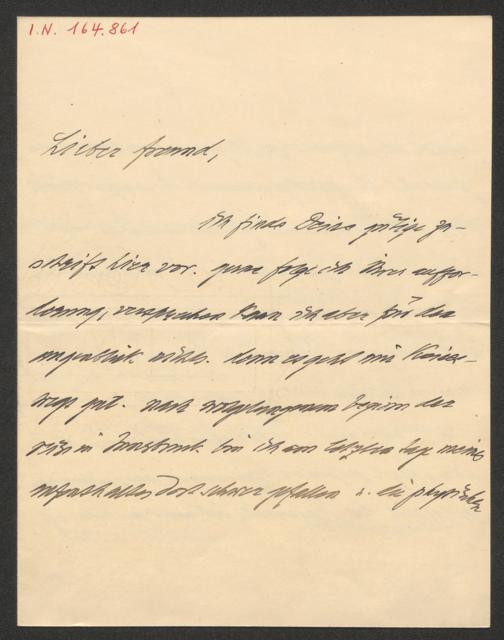 I.N. 164.861
Lieber Freund,
ich finde Deine gütige Zu-
schrift hier vor. gerne folge ich Ihrer auffor-
derung, versprechen kann ich aber für den
augenblick nichts. denn es geht mir keines-
wegs gut. nach beginn der
in Innsbruck bin ich am letzten tage meines
aufenthaltes dort schwer gefallen u. die